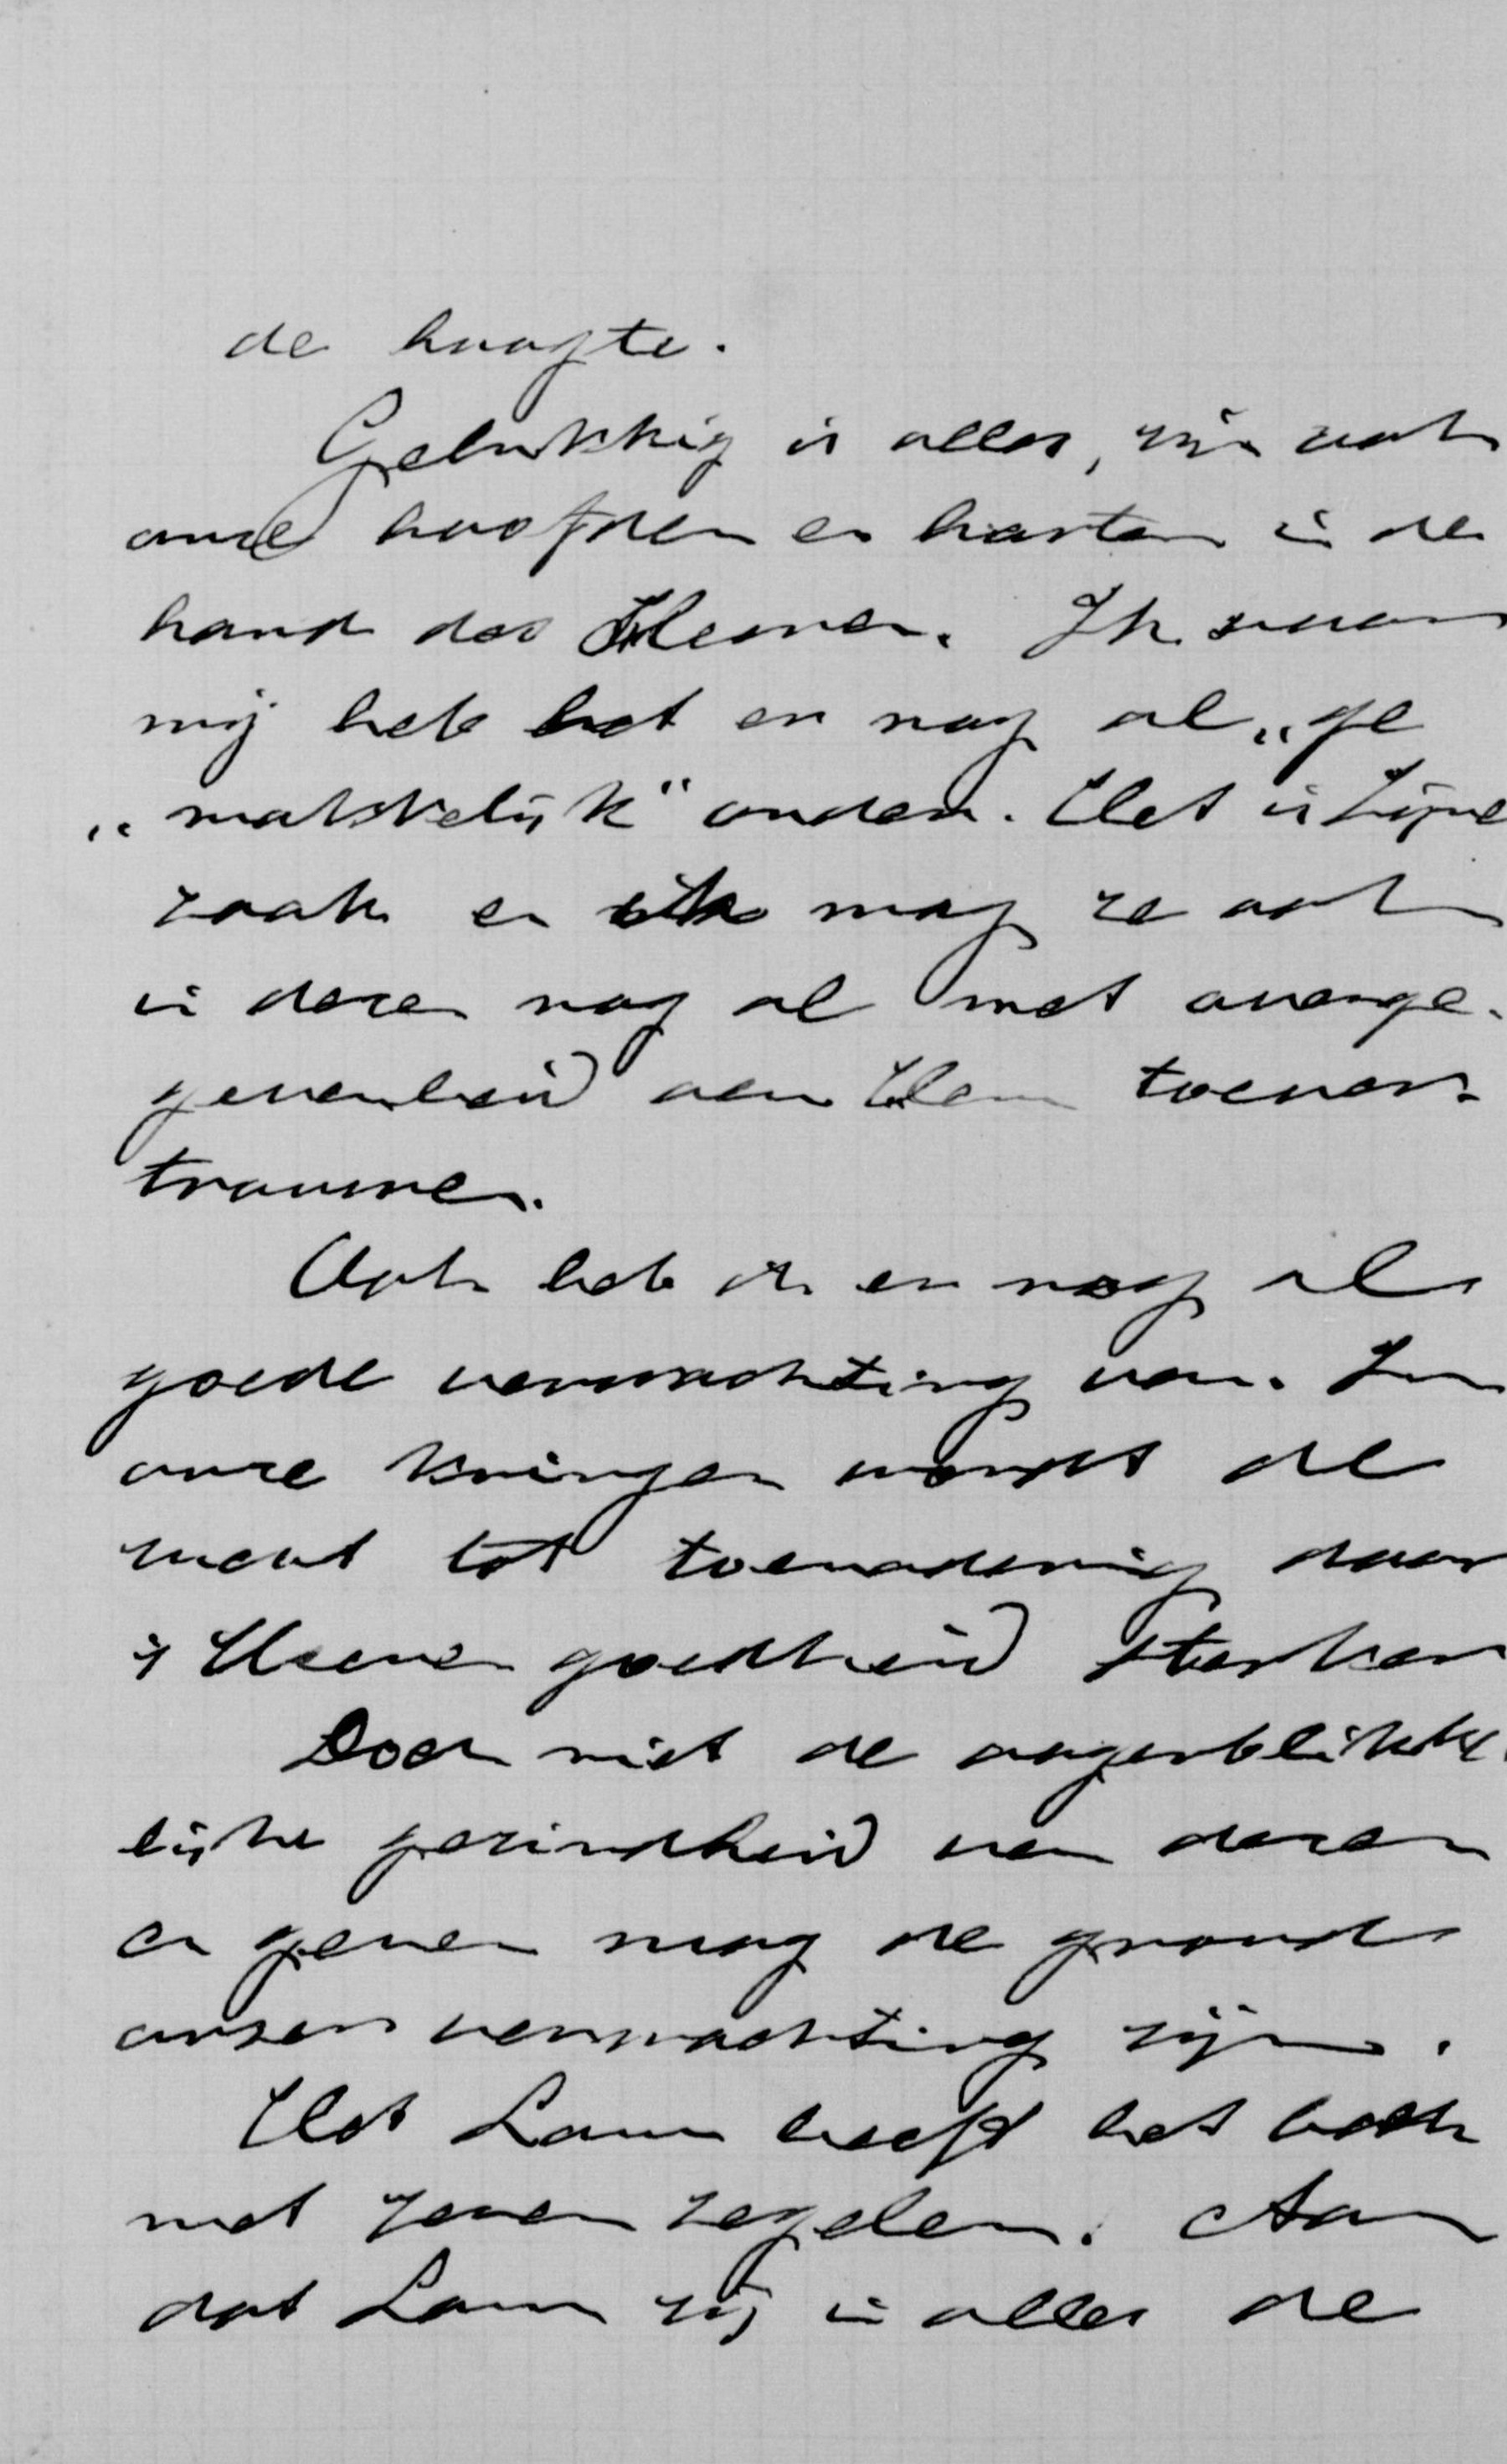 de hoogte.
Gelukkig is alles, zijn ook
onze hoofden en harten in de
hand des Heeren. Ik voor
mij heb het er nog al „ge
„makkelijk" onder. Het is Zijne
zaak en ik mag ze ook
in dezen nog al met overge-
gevenheid aan Hem toever-
trouwen.
Ook heb ik er nog al
goede verwachting van. In
onze kringen wordt de
zucht tot toenadering door
's Heeren goedheid sterker
Doch niet de oogenblikke-
lijke gezindheid van dezen
en genen mag de grond
onzer verwachting zijn.
Het Lam heeft het boek
met zeven zegelen. Aan
dat Lam zij in alles de